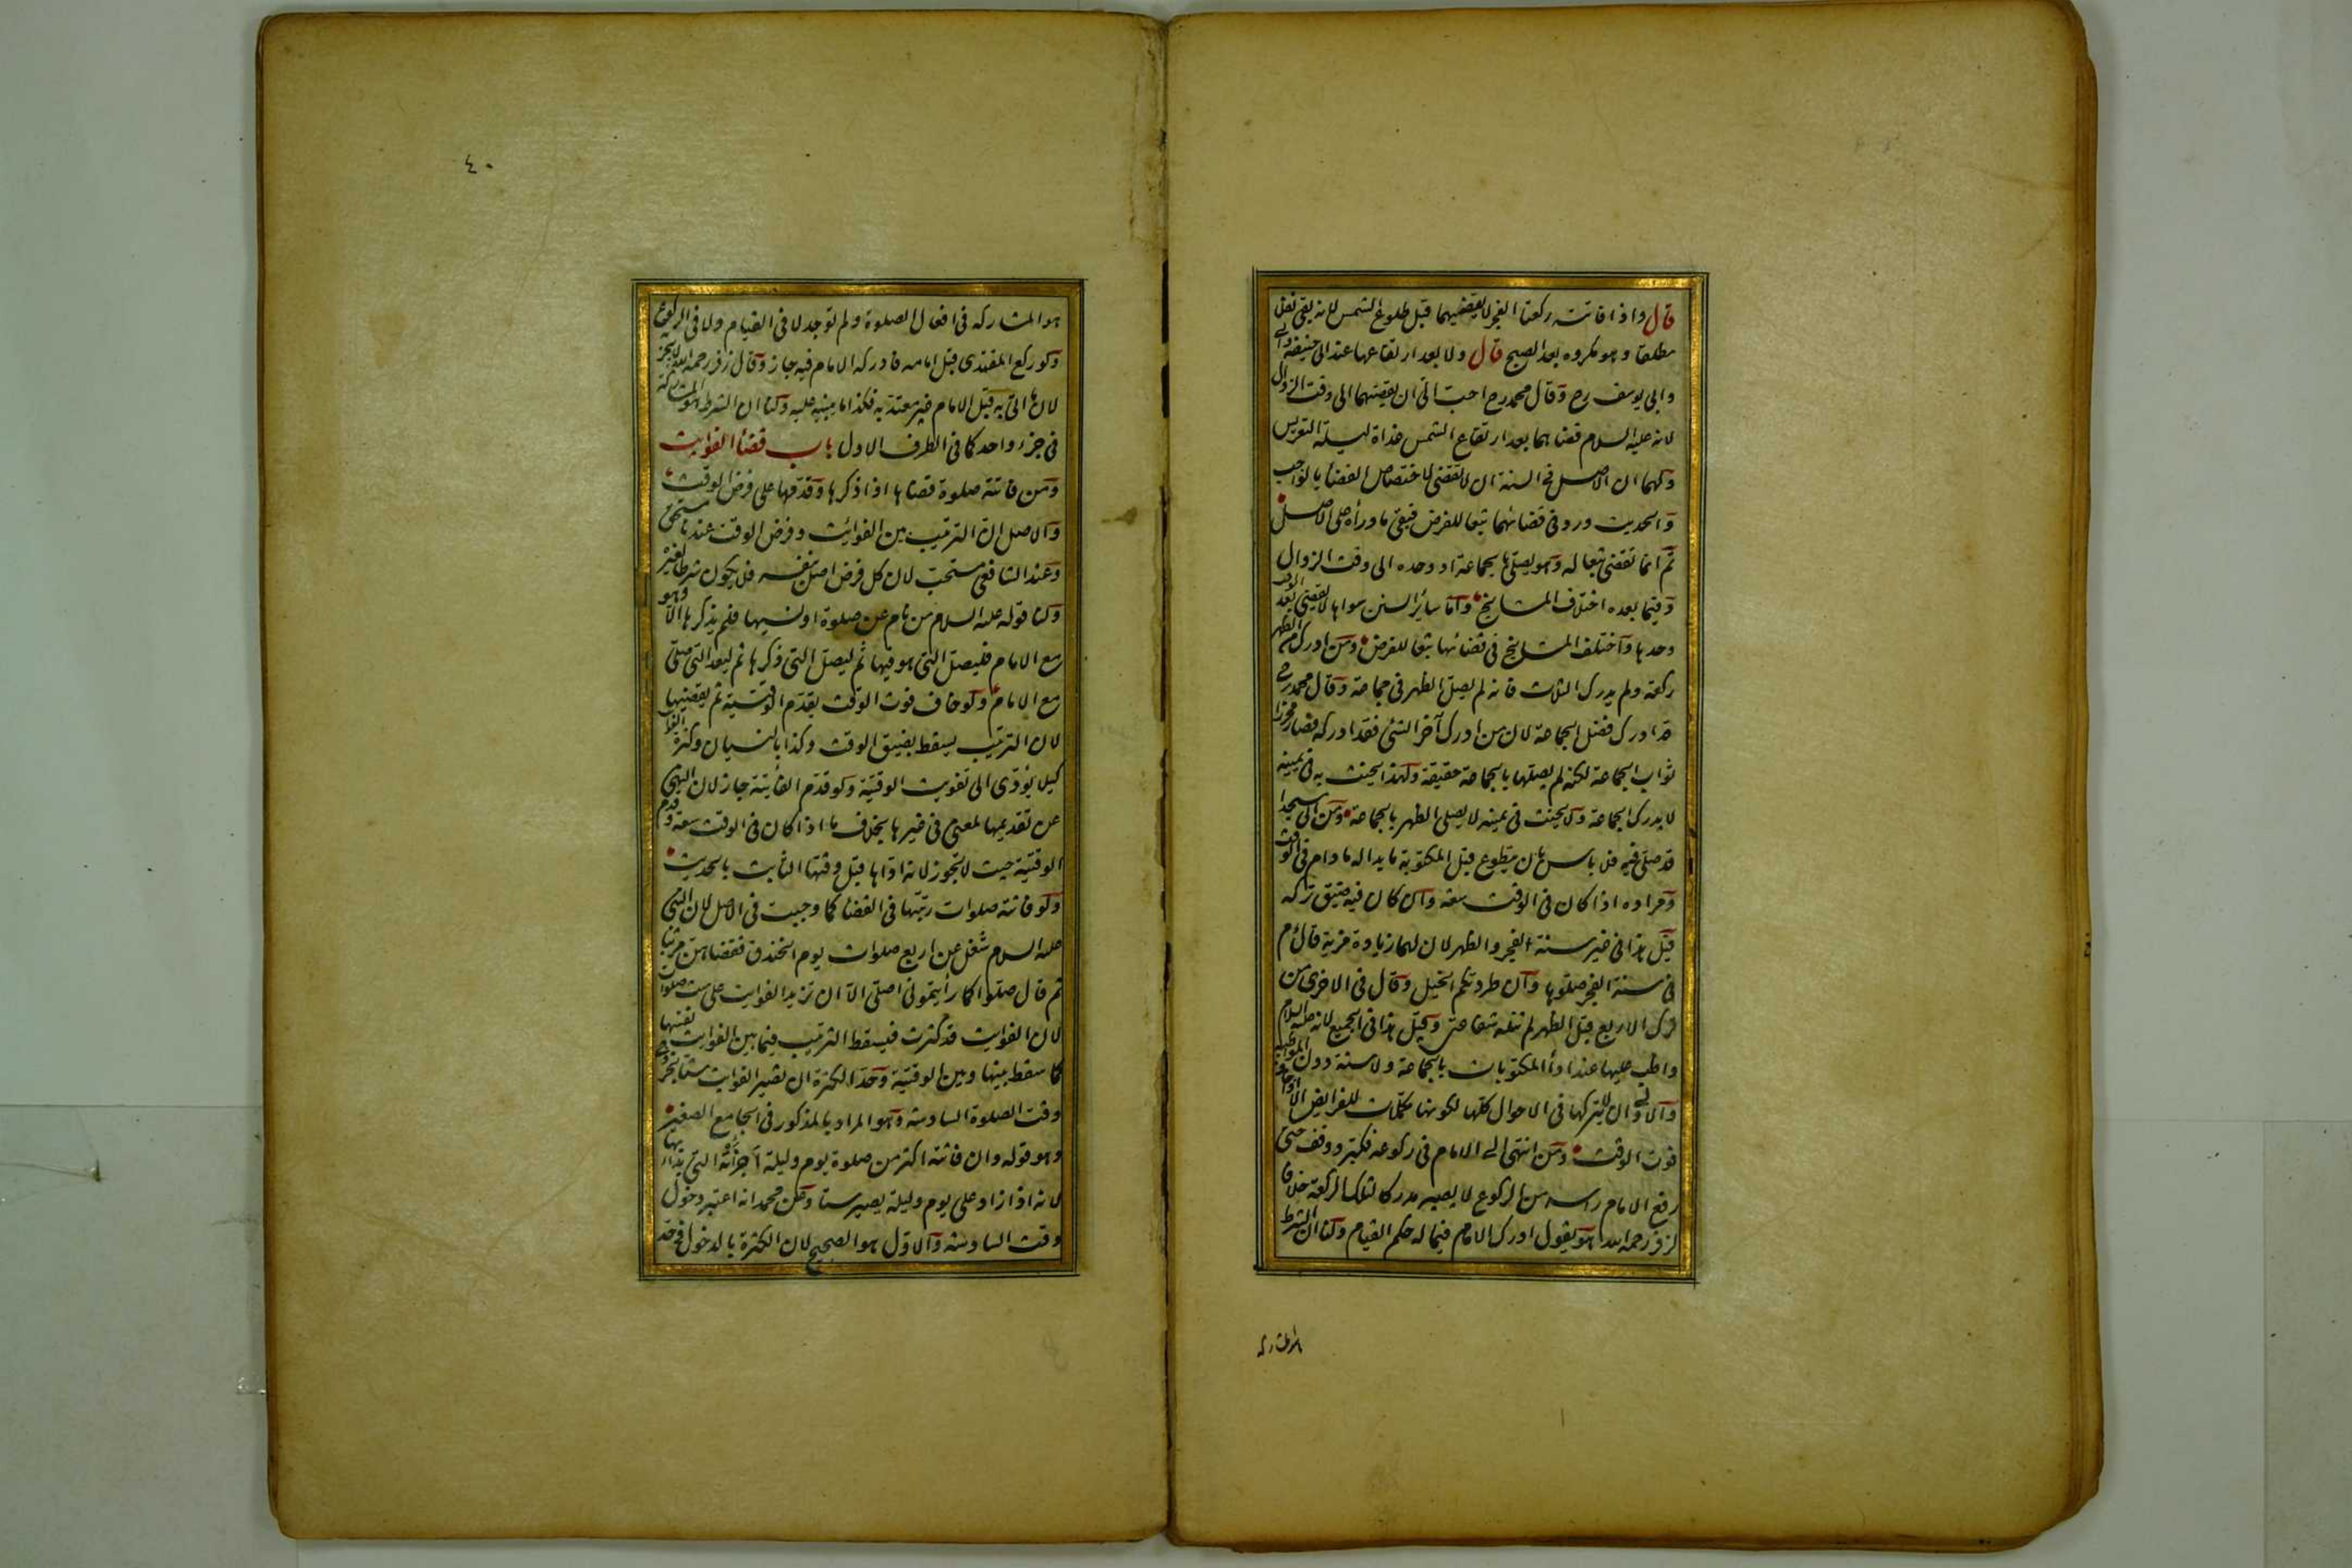 قال واذا فاتته ركعتا الفجر لا يقضيهما قبل طلوع الشمس لانه يبقى نفلا
مطلقا وهو مكروه بعد الصبح قال ولا بعد ارتفاعها عند ابى حنيفة
وابى يوسف رح وقال محمد رح احب الىّ ان يقضيهما الى وقت الزوال
لانه عليه السلام قضاهما بعد ارتفاع الشمس غداة ليلة التعريس
ولهما ان الاصل فى السنة ان لا تقضى لاختصاص القضا بالواجب
والحديث ورد فى قضائهما تبعا للفرض فبقى ما وراه على الاصل
ثم انما تقضى تبعا له وهو يصلّيها بجماعة او وحده الى وقت الزوال
وفيما بعده اختلاف المشايخ وامّا سائر السنن سواها لا يقضى بعد الوقت
وحدها واختلف المشايخ فى قضائها تبعا للفرض ومن ادرك من الظهر
ركعة ولم يدرك الثلاث فانه لم يصلّ الظهر فى جماعة وقال محمد رح
قد ادرك فضل الجماعة لان من ادرك آخر الشئ فقد ادركه فصار محرزا
ثواب الجماعة لكنه لم يصلها بالجماعة حقيقة ولهذا يحنث به فى يمينه
لا يدرك الجماعة ولا يحنث فى يمينه لا يصلى الظهر بالجماعة ومن اتى مسجدا
قد صلّى فيه فلا باس بان يتطوع قبل المكتوبة ما بدا له ما دام فى الوقت
ومراده اذا كان فى الوقت سعة وان كان فيه ضيق تركه
قيل هذا فى غير سنة الفجر والظهر لان لهما زيادة مزية قال ءم
فى سنة الفجر صلّوها وان طردتكم الخيل وقال فى الاخرى من
ترك الاربع قبل الظهر لم تنله شفاعتى وقيل هذا فى الجميع لانه عليه السلام
واظب عليها عند ادأ المكتوبات بالجماعة ولا سنة دون المواظبة
والاولى ان لا يتركها فى الاحوال كلّها لكونها مكمّلات للفرايض الا اذا خاف
فوت الوقت ومن انتهى الى الامام فى ركوعه فكبّر ووقف حتى
رفع الامام راسه من الركوع لا يصير مدركا لتلك الركعة خلافا
لزفر رحمه الله هو يقول ادرك الامام فيما له حكم القيام ولنا ان الشرط
هو المشاركة
٤٠
هو المشاركه فى افعال الصلوة ولم توجد لا فى القيام ولا فى الركوع
ولو ركع المقتدى قبل امامه فادركه الامام فيه جاز وقال زفر رحمه الله لا يجز
لان ما اتى به قبل الامام غير معتد به فكذا ما يبنيه عليه ولنا ان الشرط هو المشاركة
فى جزء واحد كما فى الطرف الاول باب قضأ الفوايت
ومن فاتته صلوة قضاها اذا ذكرها وقدّمها على فرض الوقت
والاصل انّ الترتيب بين الفوائت وفرض الوقت عندنا مستحق
وعند الشافعى مستحبّ لان كل فرض اصل بنفسه فلا يكون شرطا لغيره
ولنا قوله عليه السلام من نام عن صلوة او نسيها فلم يذكرها الّا وهو
مع الامام فليصلّ التى هو فيها ثم ليصلّ التى ذكرها ثم ليعد التى صلّى
مع الامام ولو خاف فوت الوقت يقدّم الوقتية ثم يقضيها
لان الترتيب يسقط بضيق الوقت وكذا بالنسيان وكثرة الفوا
كيلا يؤدّى الى تفويت الوقتيّة ولو قدّم الفائتة جاز لان النهى
عن تقديمها لمعنى فى غيرها بخلاف ما اذا كان فى الوقت سعة وقدم
الوقتيّة حيث لا تجوز لانه ادّاها قبل وقتها الثابت بالحديث
ولو فاتته صلوات رتبها فى القضا كما وجبت فى الاصل لان النبى
عليه السلام شغل عن اربع صلوات يوم الخندق فقضاهنّ مرتبا
ثم قال صلّوا كما رأيتمونى اصلّى الّا ان تزيد الفوايت على ست صلوات
لان الفوايت قد كثرت فيسقط الترتيب فيما بين الفوايت نفسها
كما سقط بينها وبين الوقتيّة وحدّ الكثرة ان تصير الفوايت ستا بخروج
وقت الصلوة السادسة وهو المراد بالمذكور فى الجامع الصغير
وهو قوله وان فاتته اكثر من صلوة يوم وليلة اجزأته التى بدا بها
لانه اذا زاد على يوم وليلة يصير ستا وعن محمد انه اعتبر دخول
وقت السادسة والاوّل هو الصحيح لان الكثرة بالدخول فى حد